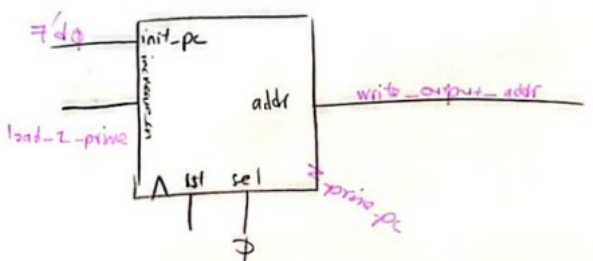 7'dφ
init_pc
increment_en
addr
write_output_addr
load_z_prime
rst sel
z_prime_pc
φ